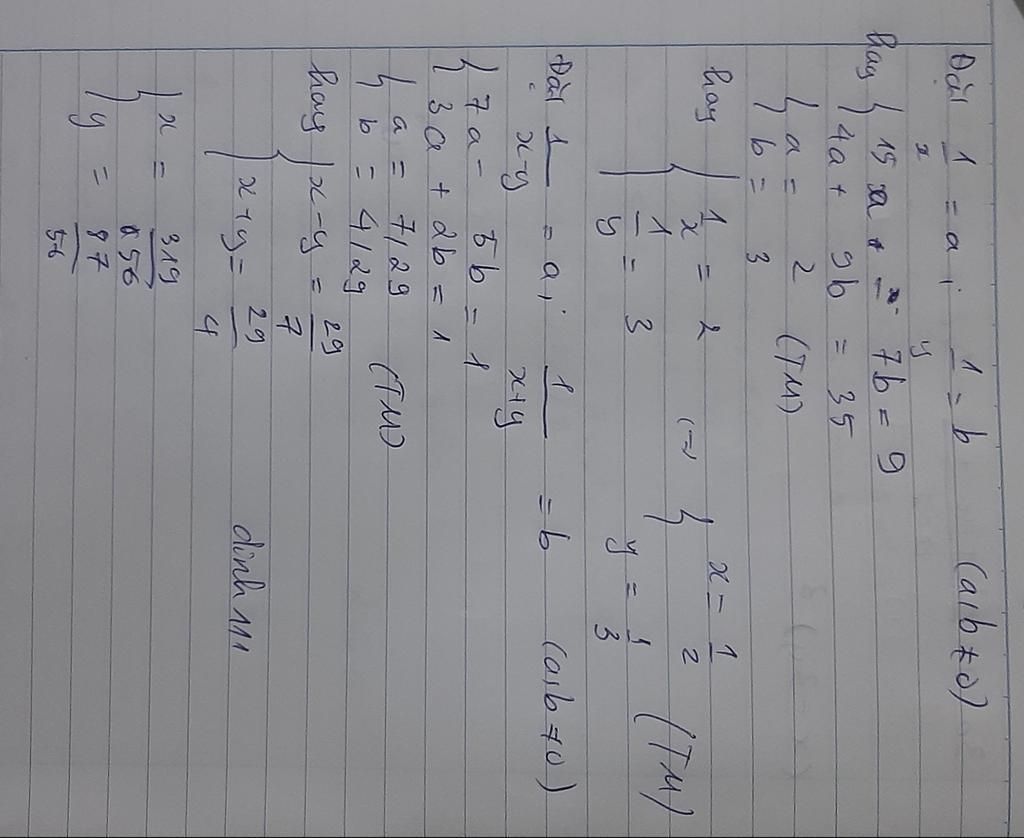 Đặt 1/x = a ; 1/y = b (a,b ≠ 0)
hay { 15a - 7b = 9
4a + 9b = 35
{ a = 2
b = 3 (TM)
hay { 1/x = 2
1/y = 3
(=) { x = 1/2
y = 1/3 (TM)
Đặt 1/x-y = a ; 1/x+y = b (a,b ≠ 0)
{ 7a - 5b = 1
3a + 2b = 1
{ a = 7/29
b = 4/29 (TM)
hay { x-y = 29/7
x+y = 29/4
{ x = 319/56
y = 87/56
dinh111